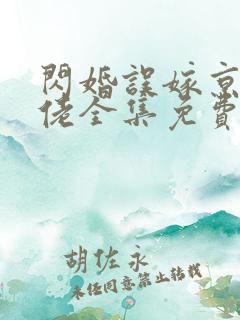 閃婚誤嫁京
佬全集免費
胡佐永
未經同意禁止轉載